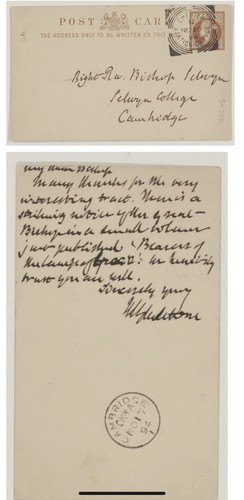 POST CARD
THE ADDRESS ONLY TO BE WRITTEN ON THIS
Right Rev. Bishop Selwyn
Selwyn College
Cambridge
My dear Bishop
Many thanks for the very
interesting tract. There is a
striking notice of the great
Bishop in a small volume
just published "Bearers of
the
trust you are well.
Sincerely yours
WEGladstone
CAMBRIDGE
NO 17
94